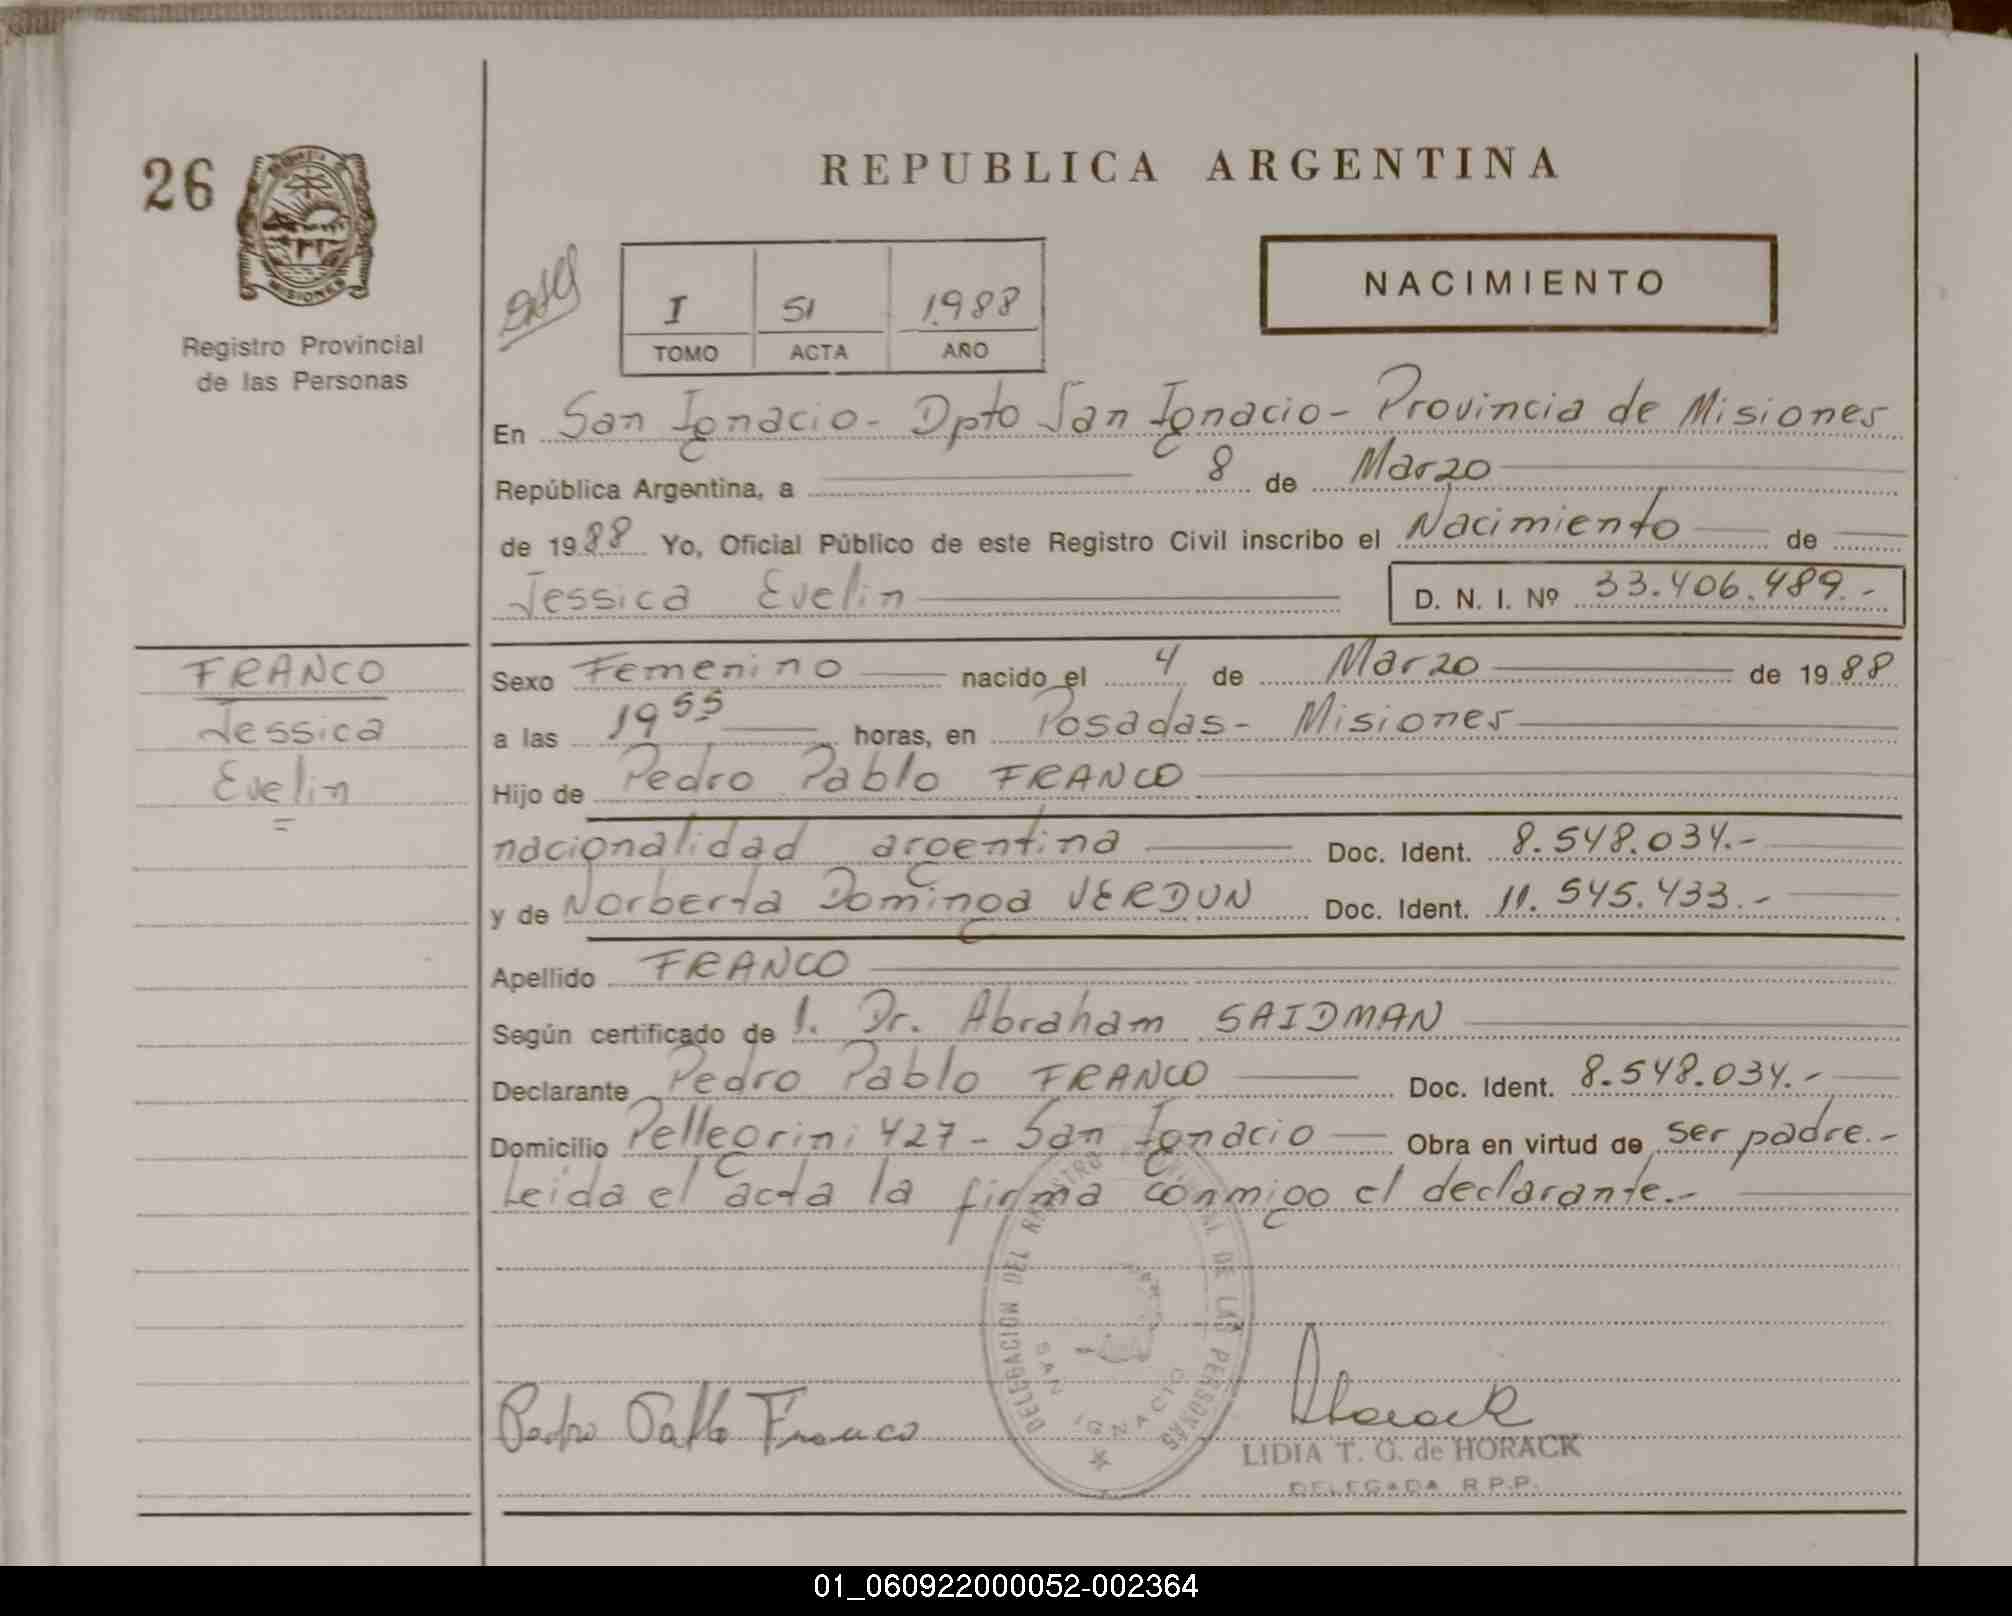 26
Registro Provincial
de las Personas
MISIONES
REPUBLICA ARGENTINA
NACIMIENTO
I 51 1988
TOMO ACTA AÑO
En San Ignacio - Dpto San Ignacio - Provincia de Misiones
República Argentina, a 8 de Marzo
de 1988 Yo, Oficial Público de este Registro Civil inscribo el Nacimiento de
Jessica Evelin D. N. I. Nº 33.406.489.-
FRANCO
Jessica
Evelin
Sexo Femenino nacido el 4 de Marzo de 1988
a las 19 55 horas, en Posadas - Misiones
Hijo de Pedro Pablo FRANCO
nacionalidad argentina Doc. Ident. 8.548.034.-
y de Norberta Dominga VERDUN Doc. Ident. 11.545.433.-
Apellido FRANCO
Según certificado de l. Dr. Abraham SAIDMAN
Declarante Pedro Pablo FRANCO Doc. Ident. 8.548.034.-
Domicilio Pellegrini 427 - San Ignacio Obra en virtud de ser padre.-
Leida el acta la firma conmigo el declarante.-
DELEGACION DEL REGISTRO PROVINCIAL DE LAS PERSONAS
SAN IGNACIO
Pedro Pablo Franco
LIDIA T. G. de HORACK
DELEGADA R.P.P.
01_060922000052-002364